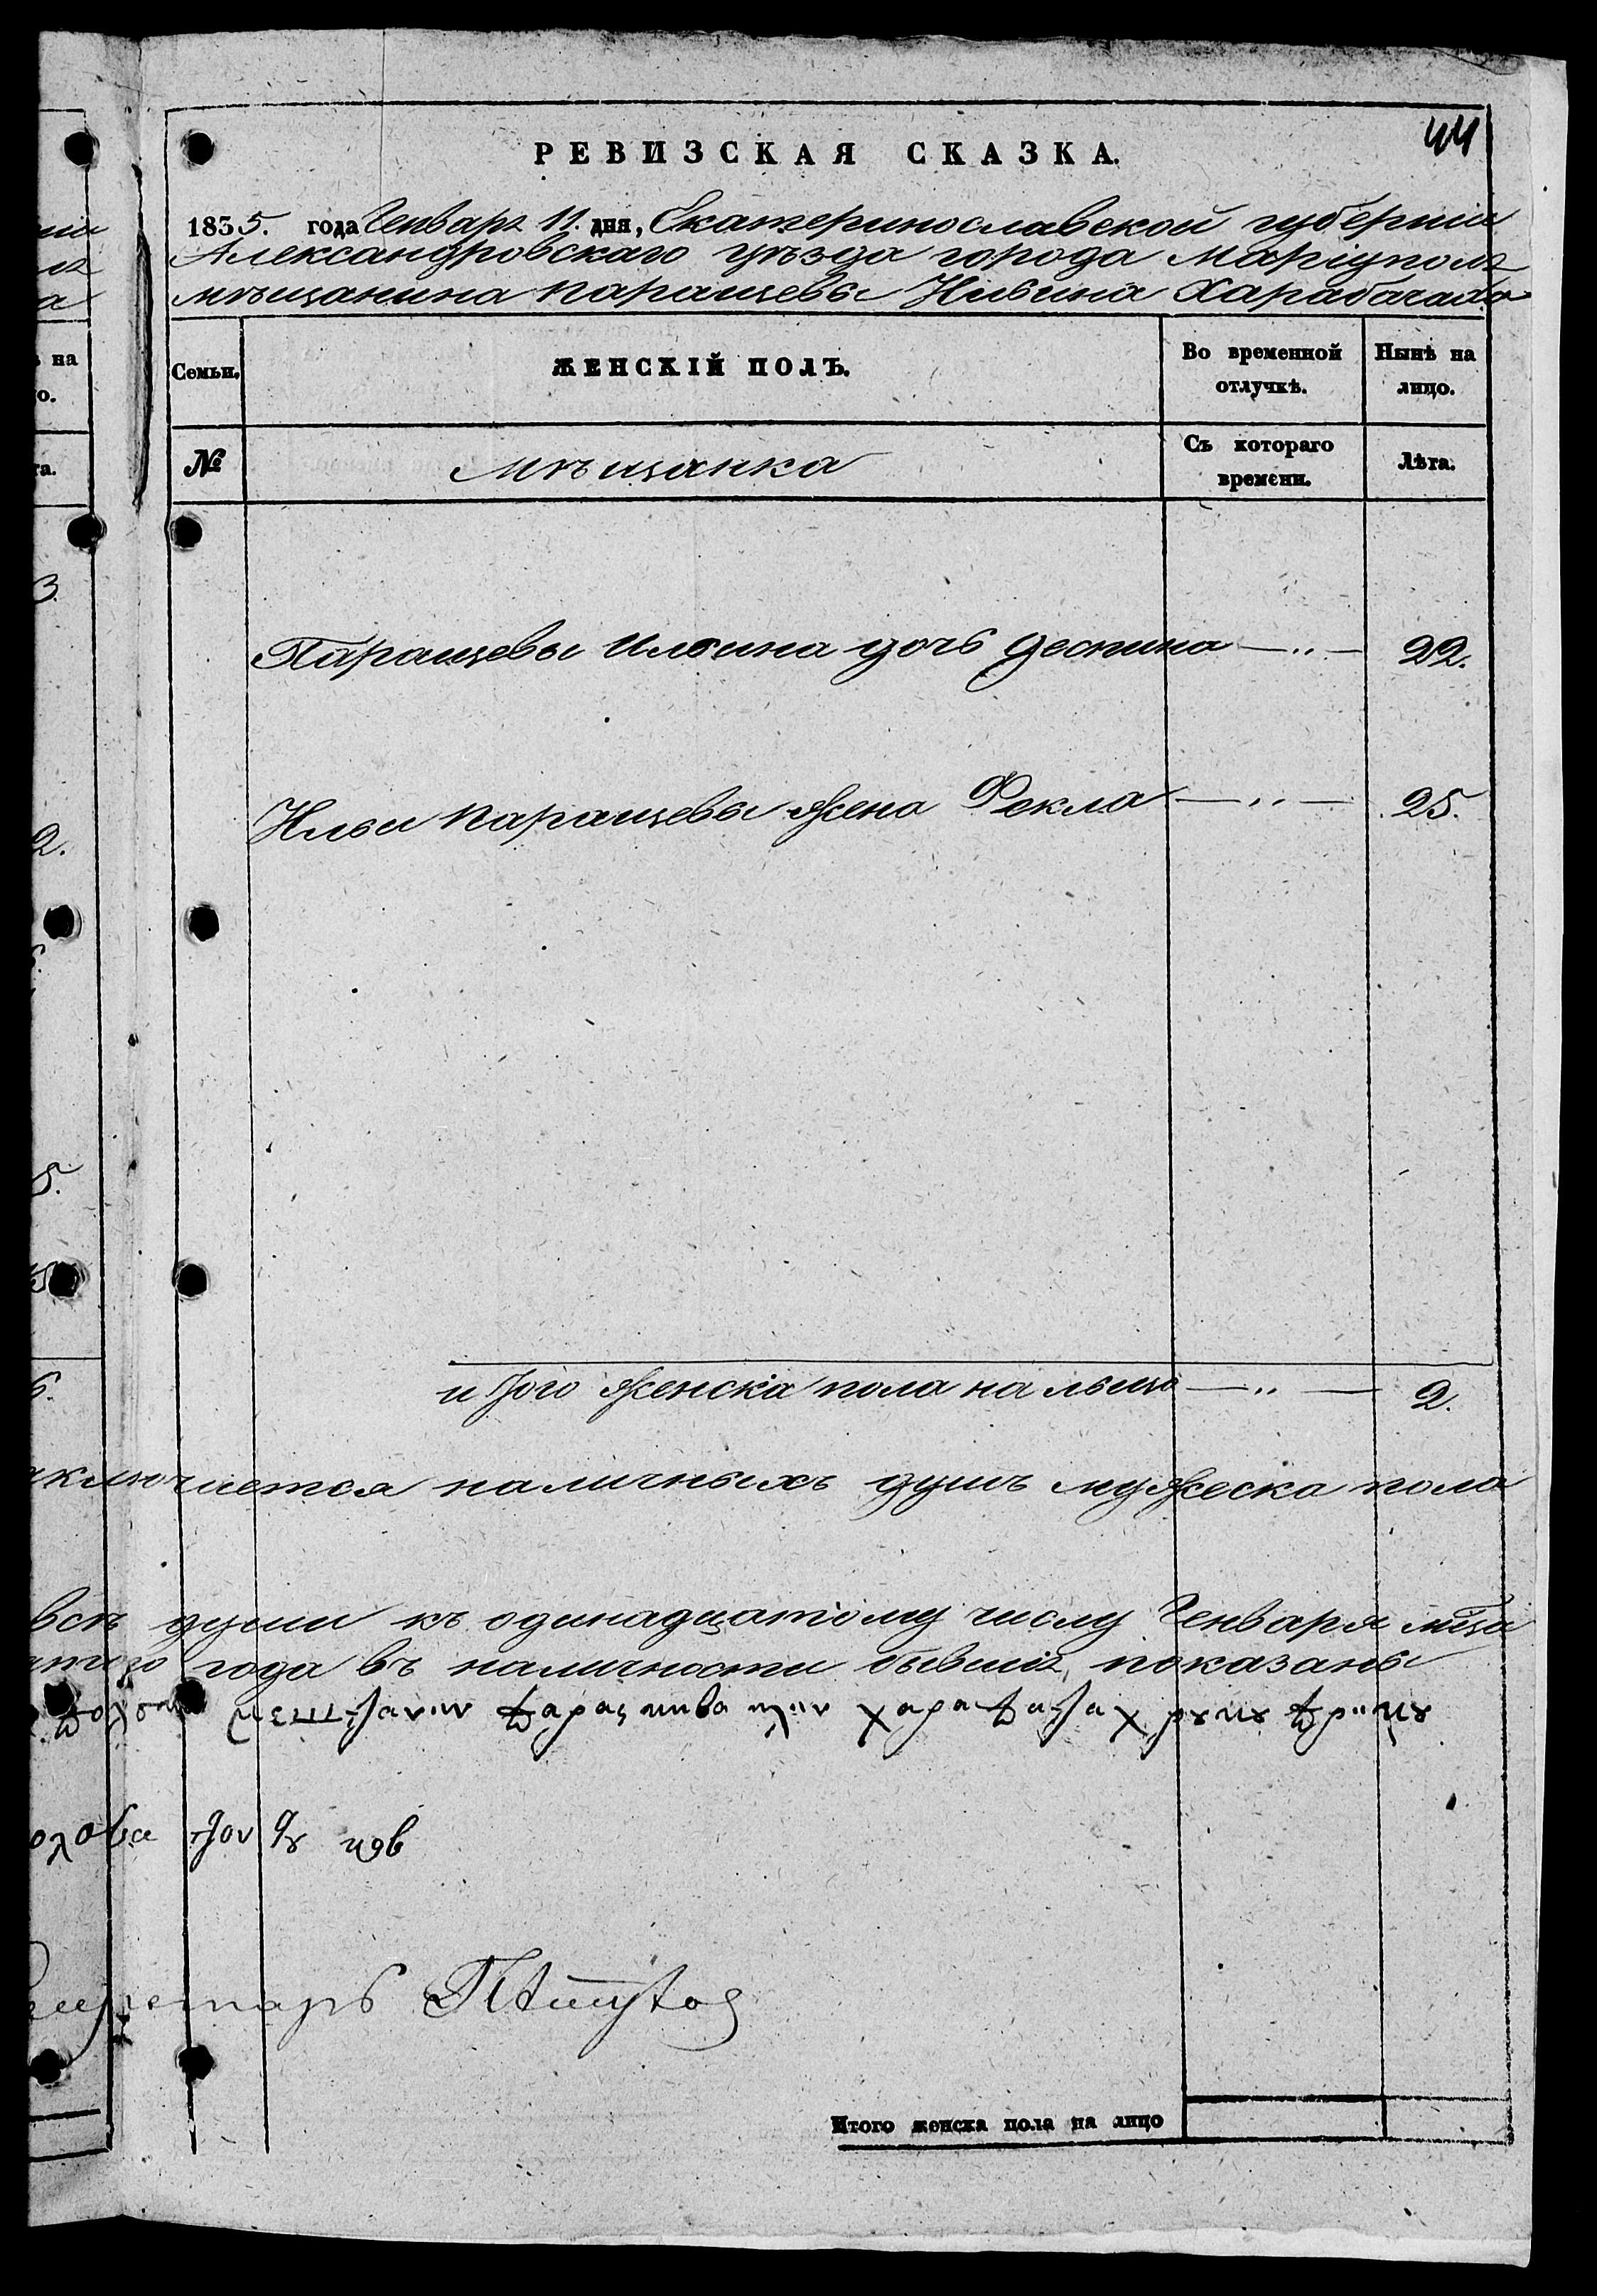 44
РЕВИЗСКАЯ СКАЗКА.
1835. года Генваря 11. дня, Екатеринославской губерніи
Александровскаго уѣзда города Маріуполя
мѣщанина Паращевы Ильина Харабачаха
Семьи. ЖЕНСКІЙ ПОЛЪ. Во временной отлучкѣ. Нынѣ на лицо.
№ мѣщанка Съ котораго времени. Лѣта.
Паращевы Ильина дочь Деспина — „ — 22.
Ильи Паращевы жена Фекла — „ — 25.
итого женска пола на льицо — „ — 2.
наличныхъ душъ мужеска пола
всѣ души къ одинадцатому числу Генваря
года въ наличности бывшія, показаны
Итого женска пола на лицо